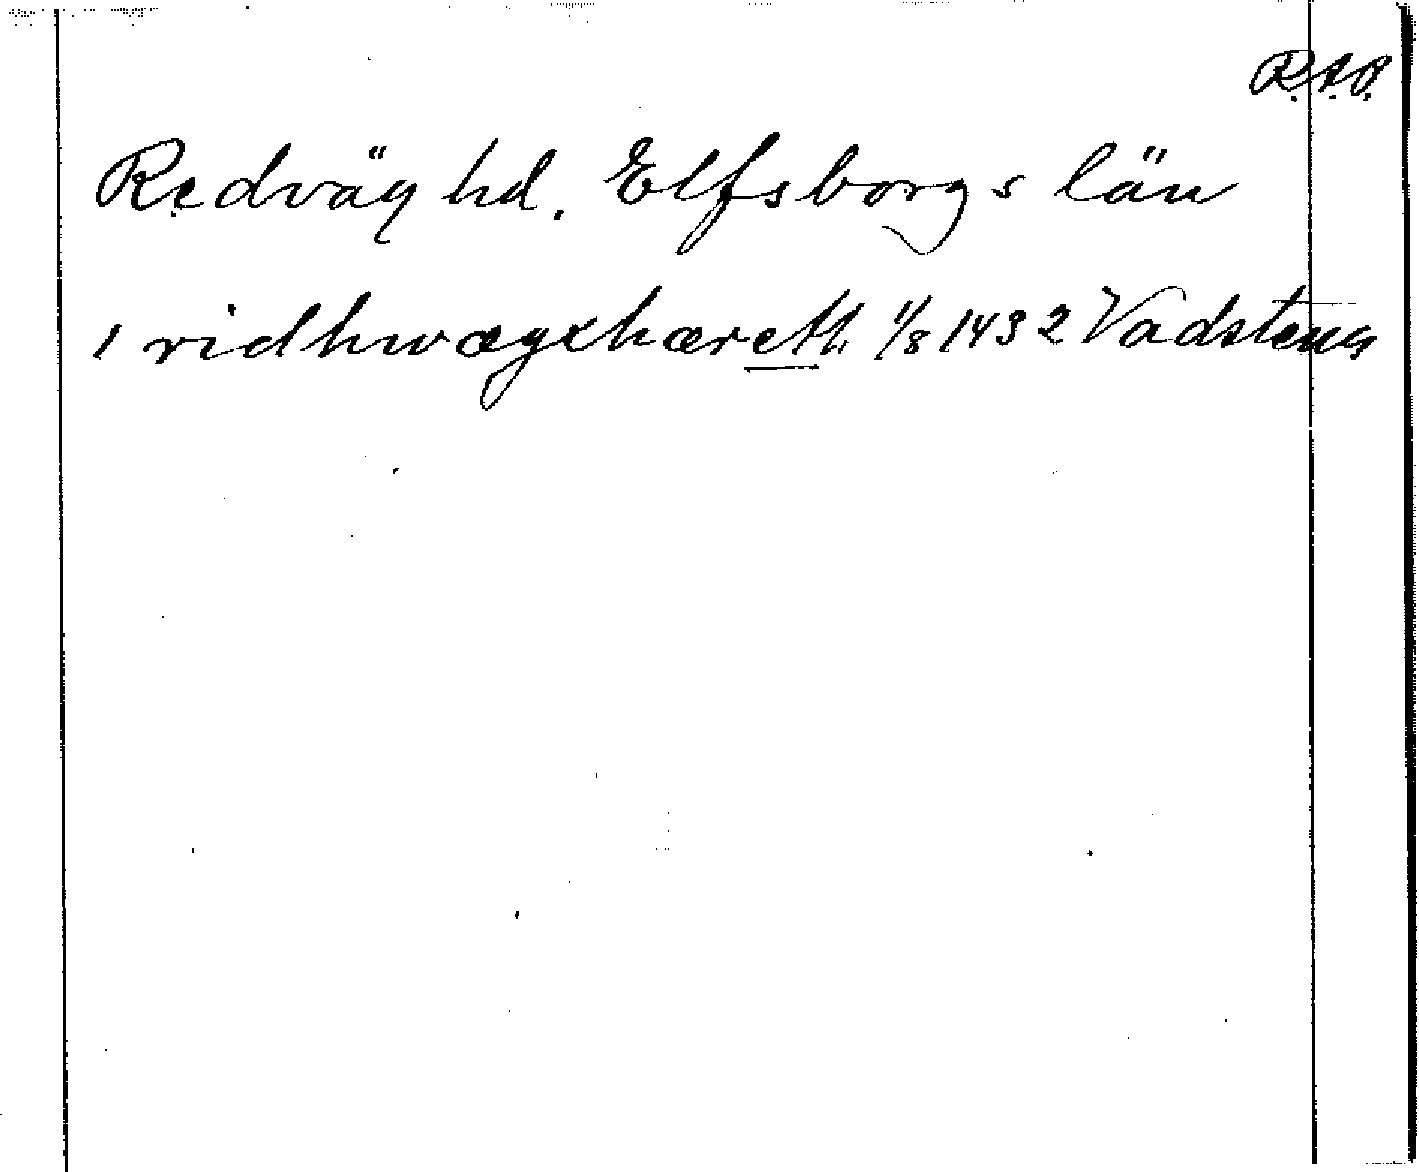 R.A.P.
Redväg hd. Elfsborgs län
i ridhwægxhæreth 1/8 1432 Vadstena